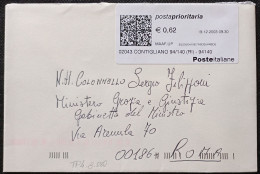 postaprioritaria
€ 0,62
02043 CONTIGLIANO 94/140 (RI) - 94140
Posteitaliane
N.H. Colonnello Sergio Filipponi
Ministero Grazia e Giustizia
Gabinetto del Ministro
Via Arenula 70
00186 ROMA